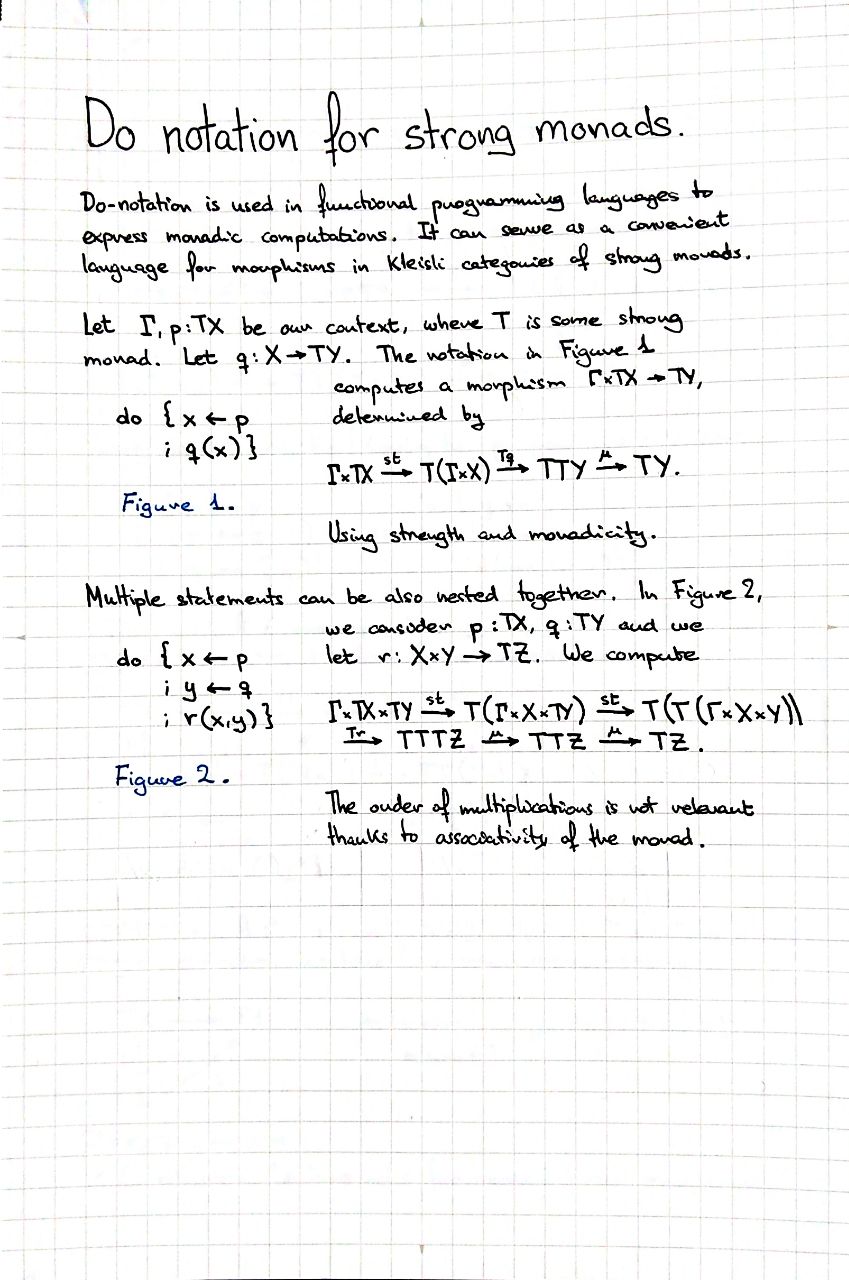 Do notation for strong monads.
Do-notation is used in functional programming languages to
express monadic computations. It can serve as a convenient
language for morphisms in Kleisli categories of strong monads.
Let Γ, p:TX be our context, where T is some strong
monad. Let q: X→TY. The notation in Figure 1
computes a morphism Γ×TX → TY,
determined by
do { x ← p
; q(x) }
Figure 1.
Γ×TX st→ T(Γ×X) Tq→ TTY μ→ TY.
Using strength and monadicity.
Multiple statements can be also nested together. In Figure 2,
we consider p:TX, q:TY and we
let r: X×Y → TZ. We compute
do { x ← p
; y ← q
; r(x,y) }
Figure 2.
Γ×TX×TY st→ T(Γ×X×TY) st→ T(T(Γ×X×Y))
Tr→ TTTZ μ→ TTZ μ→ TZ.
The order of multiplications is not relevant
thanks to associativity of the monad.